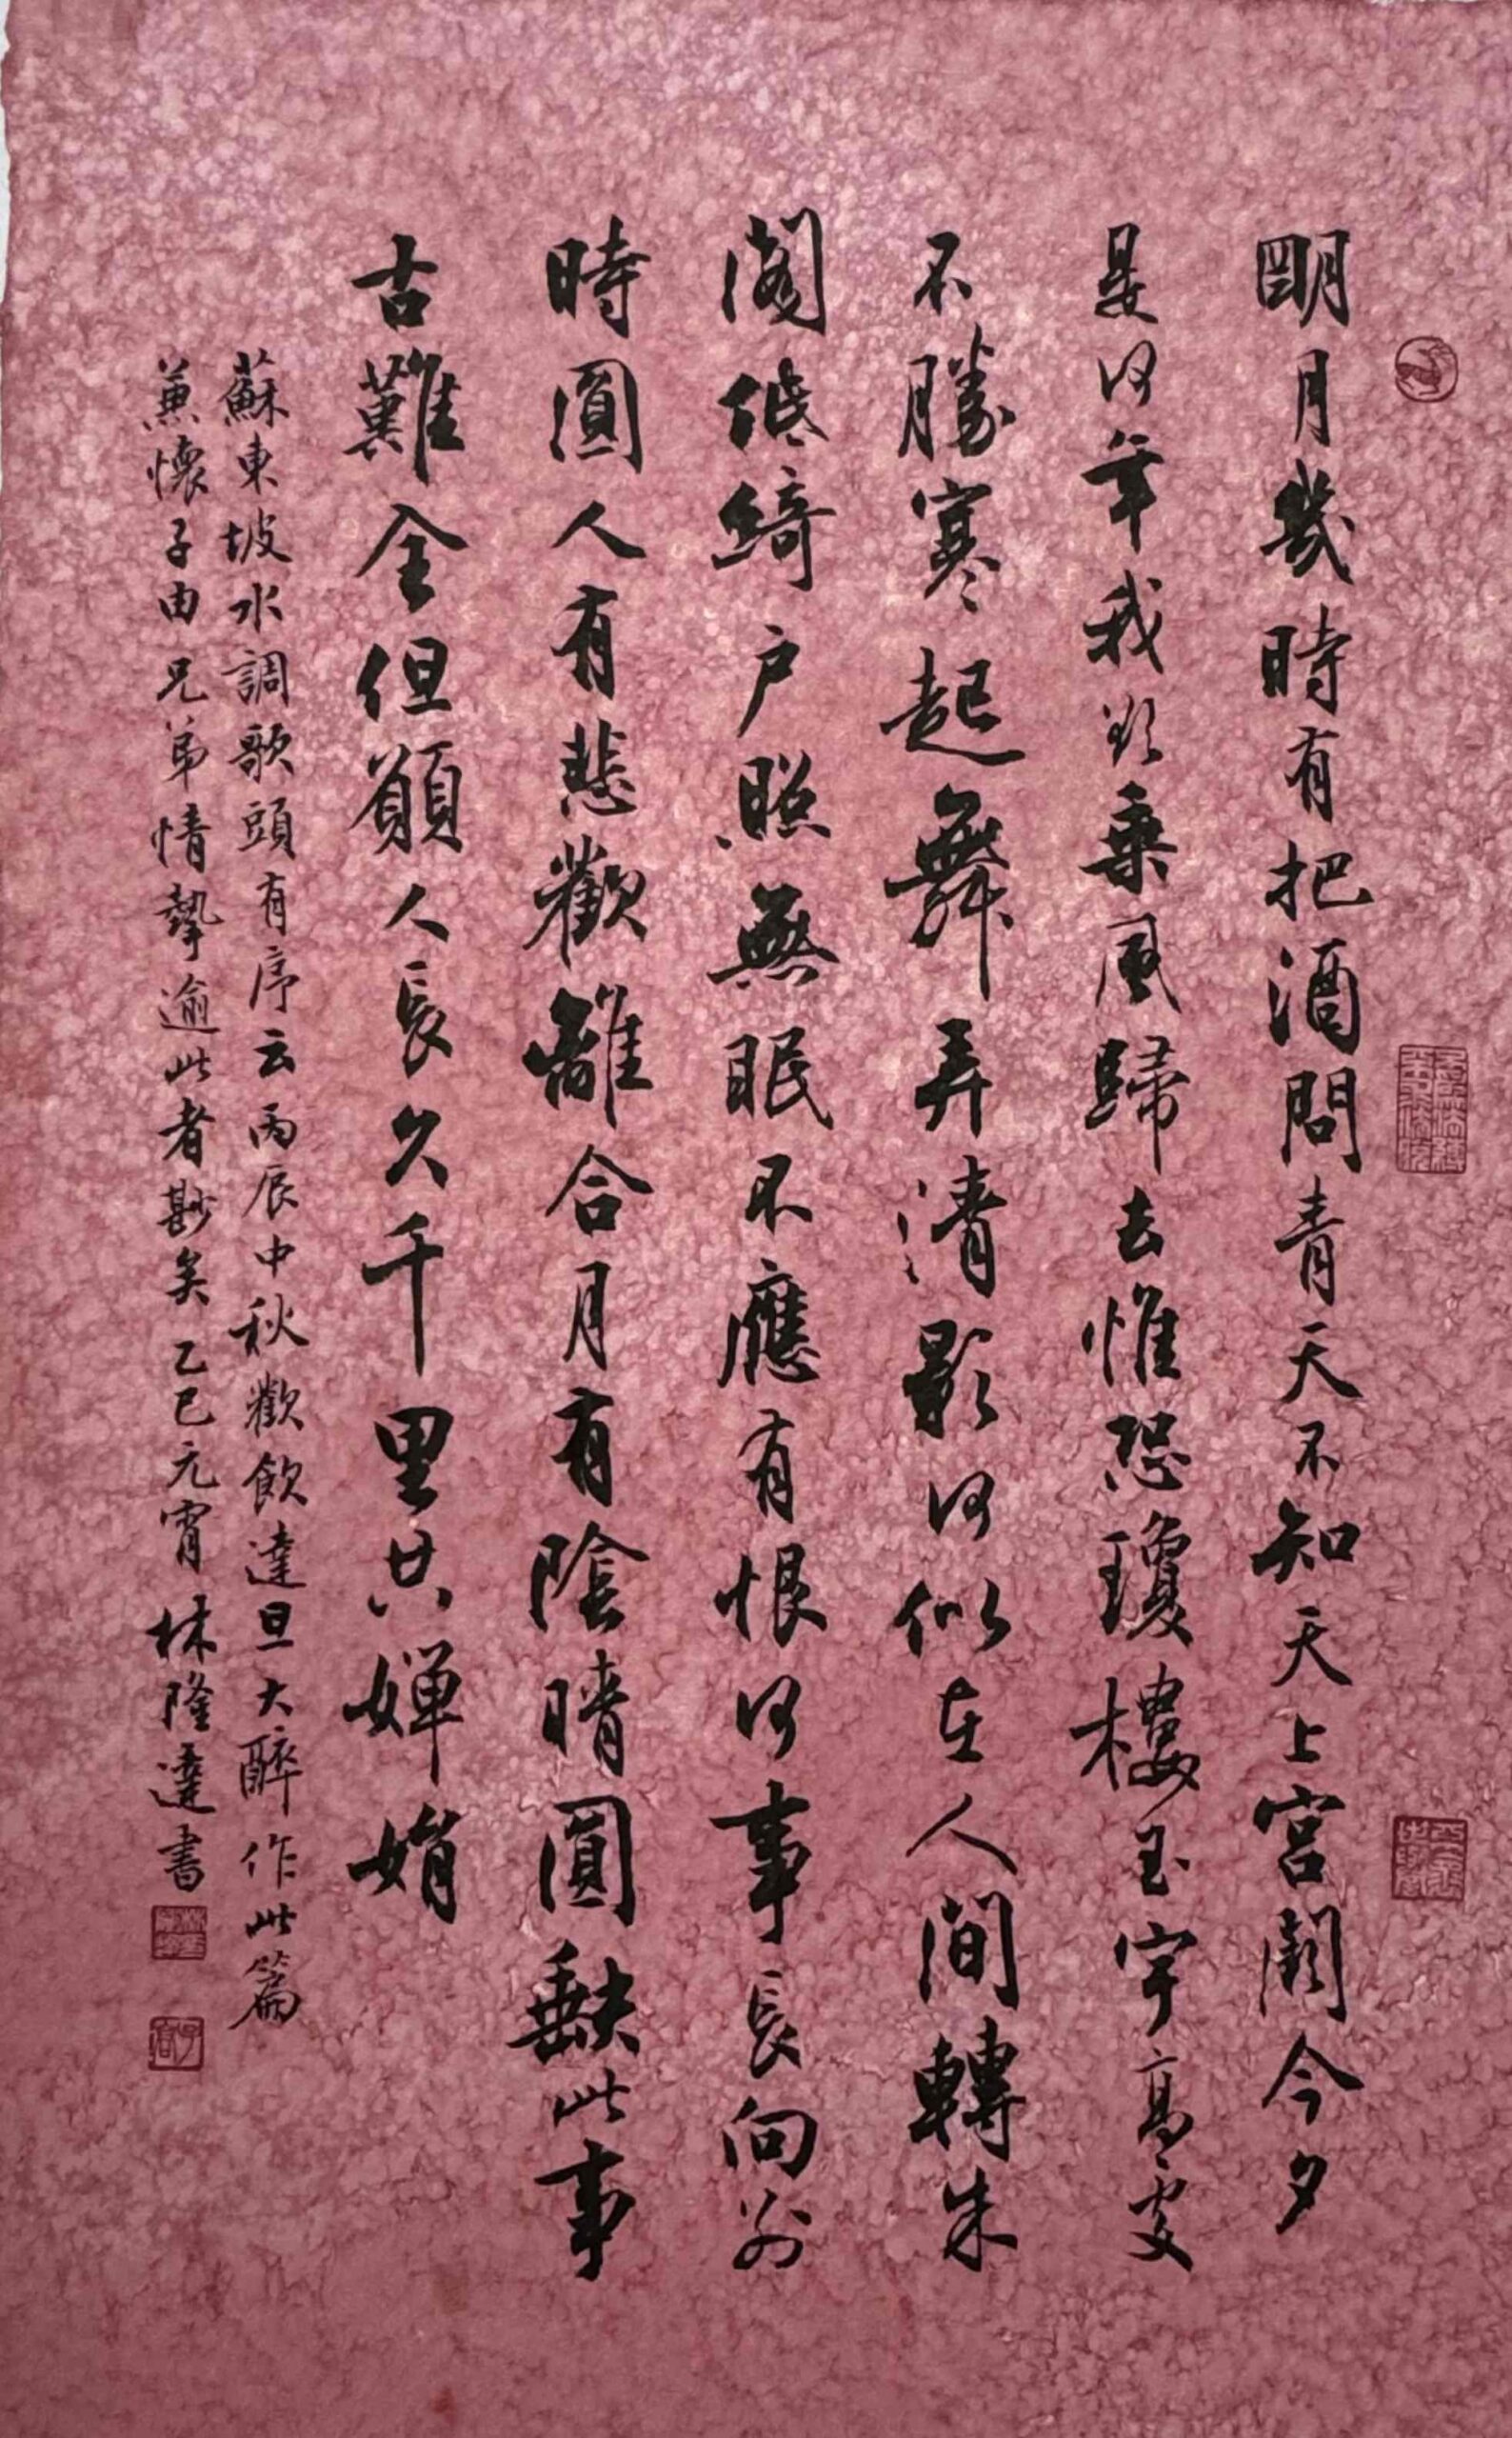 明月幾時有把酒問青天不知天上宮闕今夕
是何年我欲乘風歸去惟恐瓊樓玉宇高處
不勝寒起舞弄清影何似在人間轉朱
閣低綺户照無眠不應有恨何事長向別
時圓人有悲歡離合月有陰晴圓缺此事
古難全但願人長久千里共嬋娟
蘇東坡水調歌頭有序云丙辰中秋歡飲達旦大醉作此篇
兼懷子由兄弟情摯逾此者尠矣乙巳元宵林隆達書